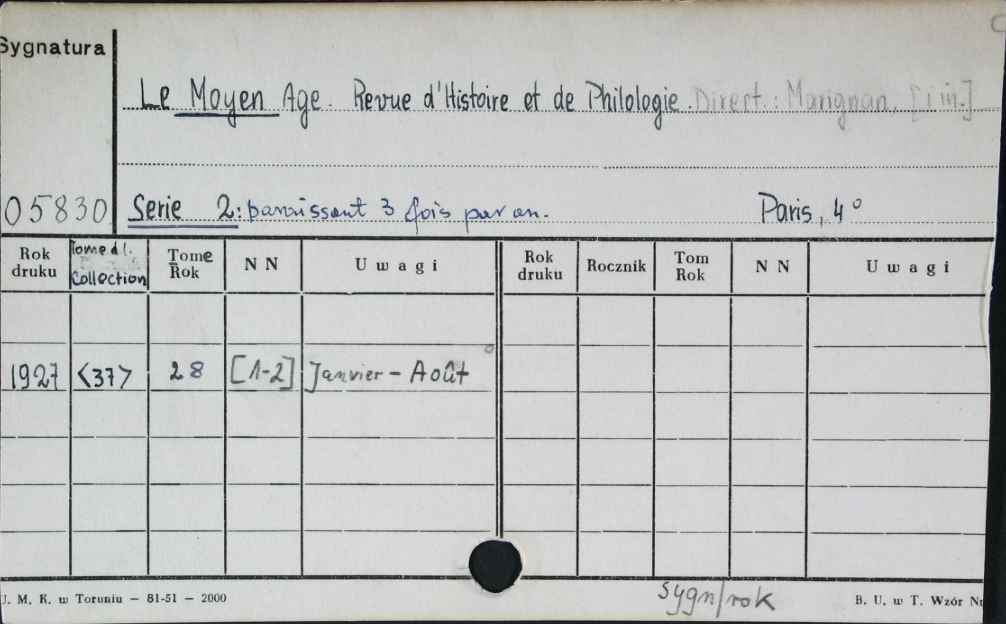 Sygnatura
Le Moyen Age. Revue d'Histoire et de Philologie. Direct.: Marignan, [i in.]
05830 Serie 2: paraissent 3 fois par an. Paris, 4°
Rok druku Tome d l. Collection Tome Rok N N Uwagi Rok druku Rocznik Tom Rok N N Uwagi
1927 <37> 28 [1-2] Janvier - Août
U. M. K. w Toruniu — 81-51 — 2000 sygn/rok B. U. w T. Wzór Nr